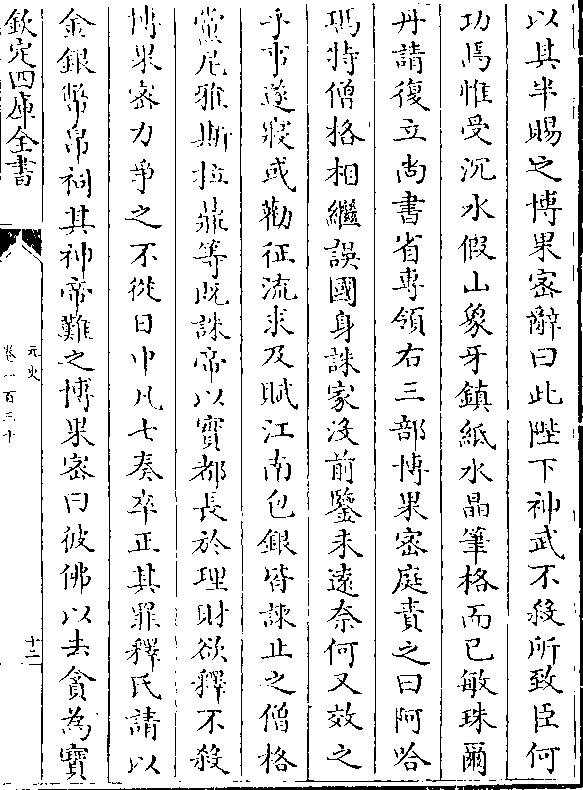 以其半賜之博果密辭曰此陛下神武不殺所致臣何
功焉惟受沉水假山象牙鎮紙水晶筆格而已敏珠爾
丹請復立尚書省専領右三部博果密庭責之曰阿哈
瑪特僧格相繼誤國身誅家沒前鑒未遠奈何又效之
乎事遂寢或勸征流求及賦江南包銀皆諫止之僧格
黨尼雅斯拉鼎等既誅帝以實都長於理財欲釋不殺
博果密力爭之不從日中凡七奏卒正其罪釋民請以
金銀幣帛祠其神帝難之博果密曰彼佛以去貪為寶
欽定四庫全書
元史
卷一百三十
十二